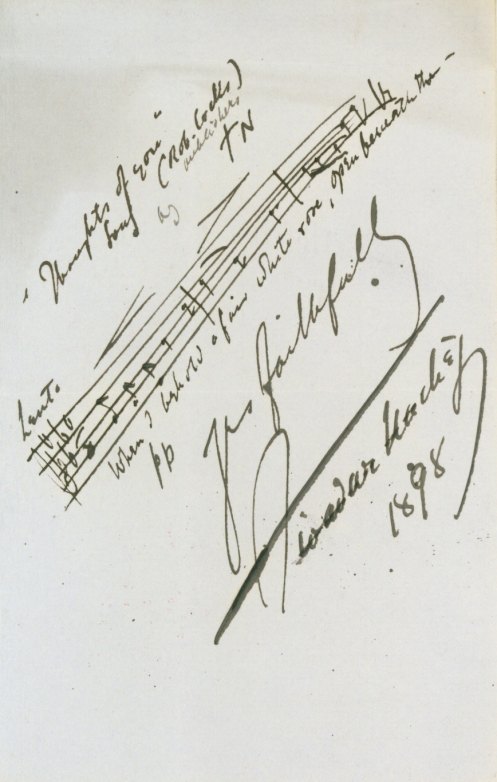 "Thoughts of you"
Song (Rob. Cocks)
publishers
by TN
Lento
When I behold a fair white rose, open beneath the -
pp
Yrs faithfully
1898